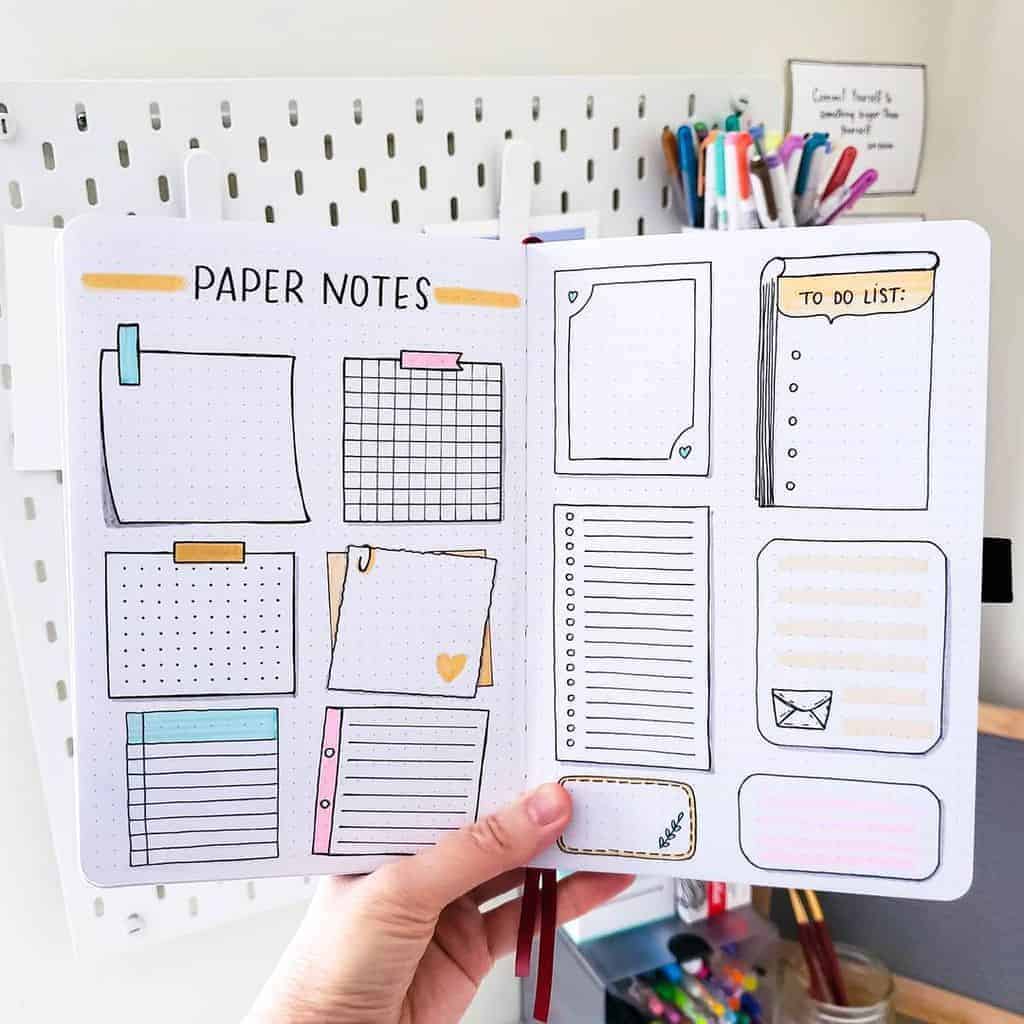 PAPER NOTES
TO DO LIST:
Commit Yourself to
something bigger than
Yourself